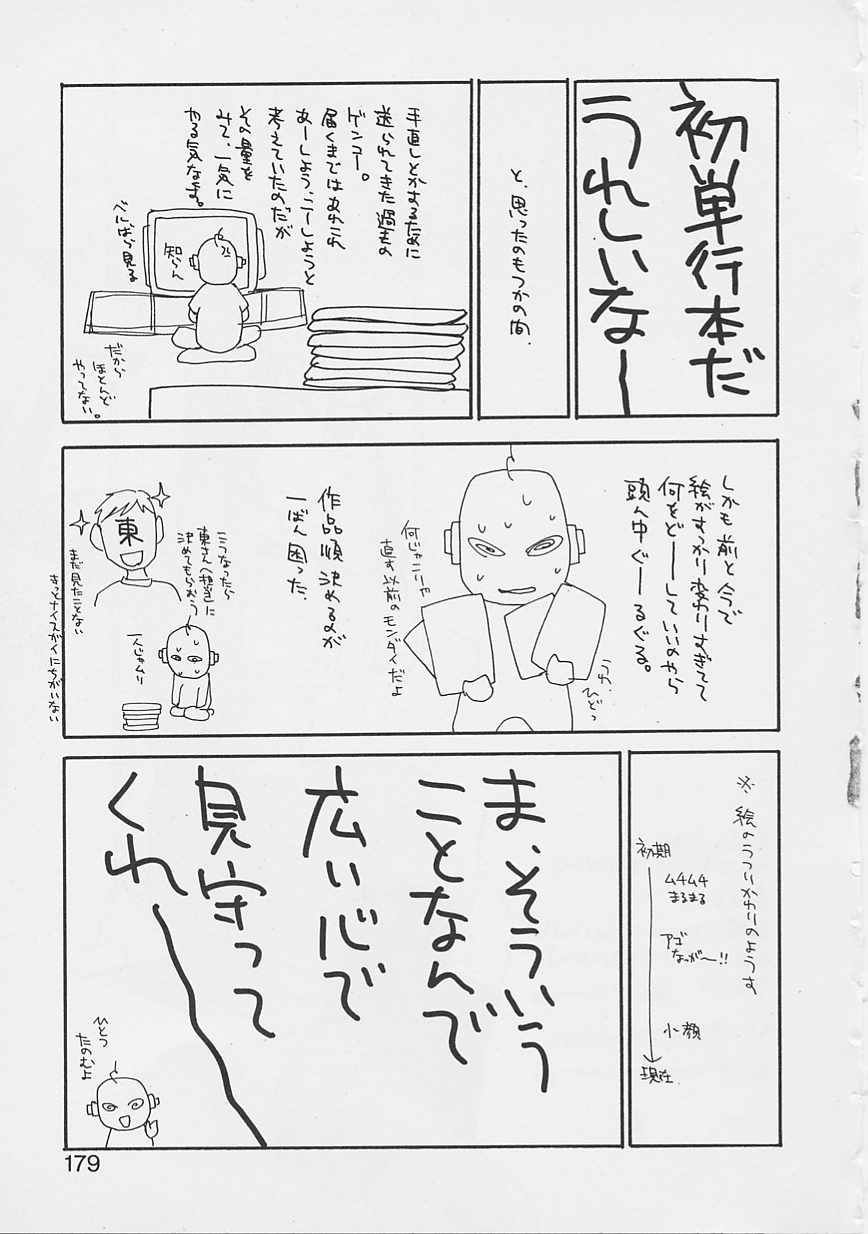 初単行本だ
うれしいなー
と、思ったのもつかの間、
手直しとかするために
送られてきた過去の
ゲンコー。
届くまではあれこれ
あーしよう、こーしようと
考えていたのだが
その量を
みて、一気に
やる気なます。
べにばら見る
知らん
だから
ほとんど
やってない。
しかも前と今で
絵がすっかり変わりすぎてて
何をどーしていいのやら
頭ん中ぐーるぐる。
うわ、
ひどっ
何じゃこりゃ
直す以前のモンダイだよ
作品順決めるのが
一ばん困った.
こうなったら
東さん(担当)に
決めてもらおう
一人じゃムリ
東
まだ見たことない
きっとナイスガイにちがいない
※絵のうつりかわりのようす
初期
ムチムチ
まるまる
アゴ
なっがー!!
小顔
現在
ま、そういう
ことなんで
広い心で
見守って
くれー
ひとつ
たのむよ
179